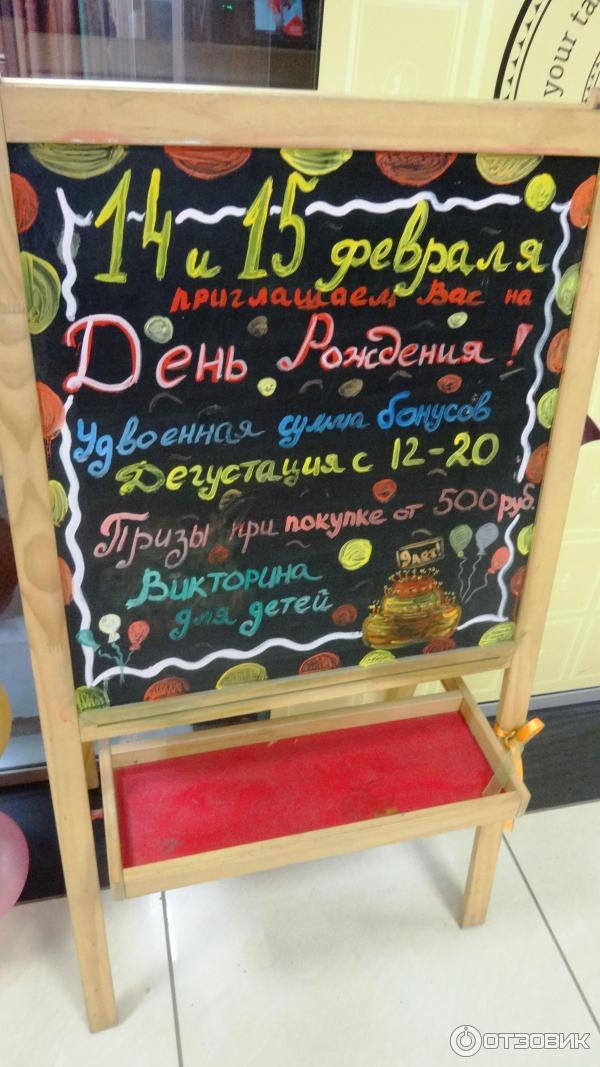 your ta
14 и 15 февраля
приглашаем Вас на
День Рождения!
Удвоенная сумма бонусов
Дегустация с 12-20
Призы при покупке от 500 руб.
Викторина
для детей
9 лет!
ОТЗОВИК